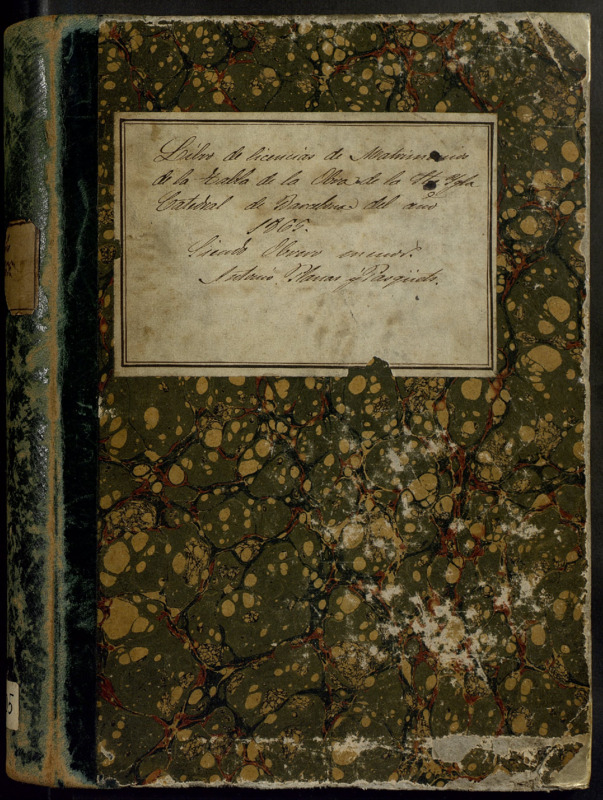 Libro de licencias de Matrimonios
de la Tabla de la Obra de la Sta Ygla
Catedral de Barcelona del año
1865.
Siendo Obrero menor.
Antonio Planas y